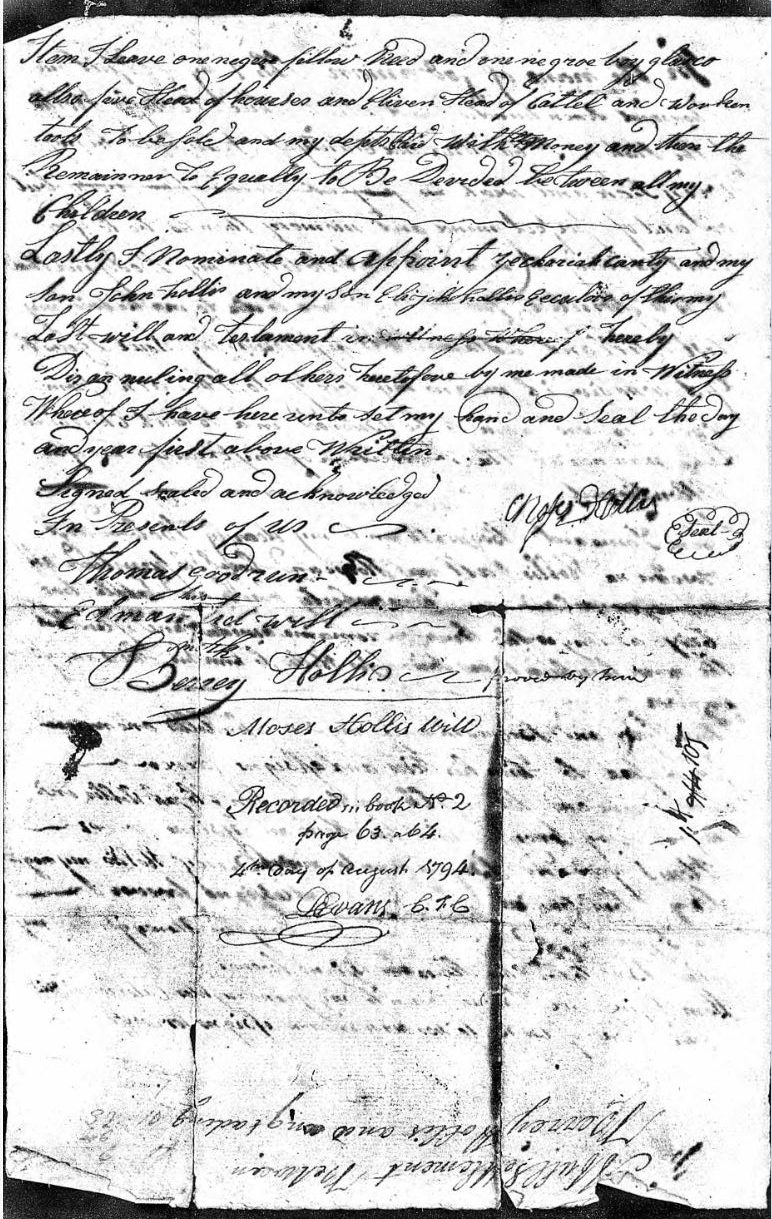 Item I Leave one negroe fellow Reed and one negroe boy glasco
also five Head of horses and Eliven Head of Cattel and Workren
tools To be sold and my depts Paid With Money and then the
Remainner To Equally to Be Devided between all my
Children
Lastly I Nominate and Appoint Zechariah canty and my
son John hollis and my son Elijah hollis Executors of this my
Last will and testament in witness Where of hereby
Disannuling all others heretofore by me made in Witness
Whereof I have here unto set my hand and Seal the day
and year first above Written
Signed sealed and acknowledged
In Presents of us
Moses Hollis
Seal
Thomas Goodrun
his
Edman Tidwill
mark
Berrey Hollis proven by him
Moses Hollis Will
Recorded in book No. 2
page 63. a 64.
4th Day of august 1794.
DEvans C.F.C
A full Settlement Between
Berrey Hollis and